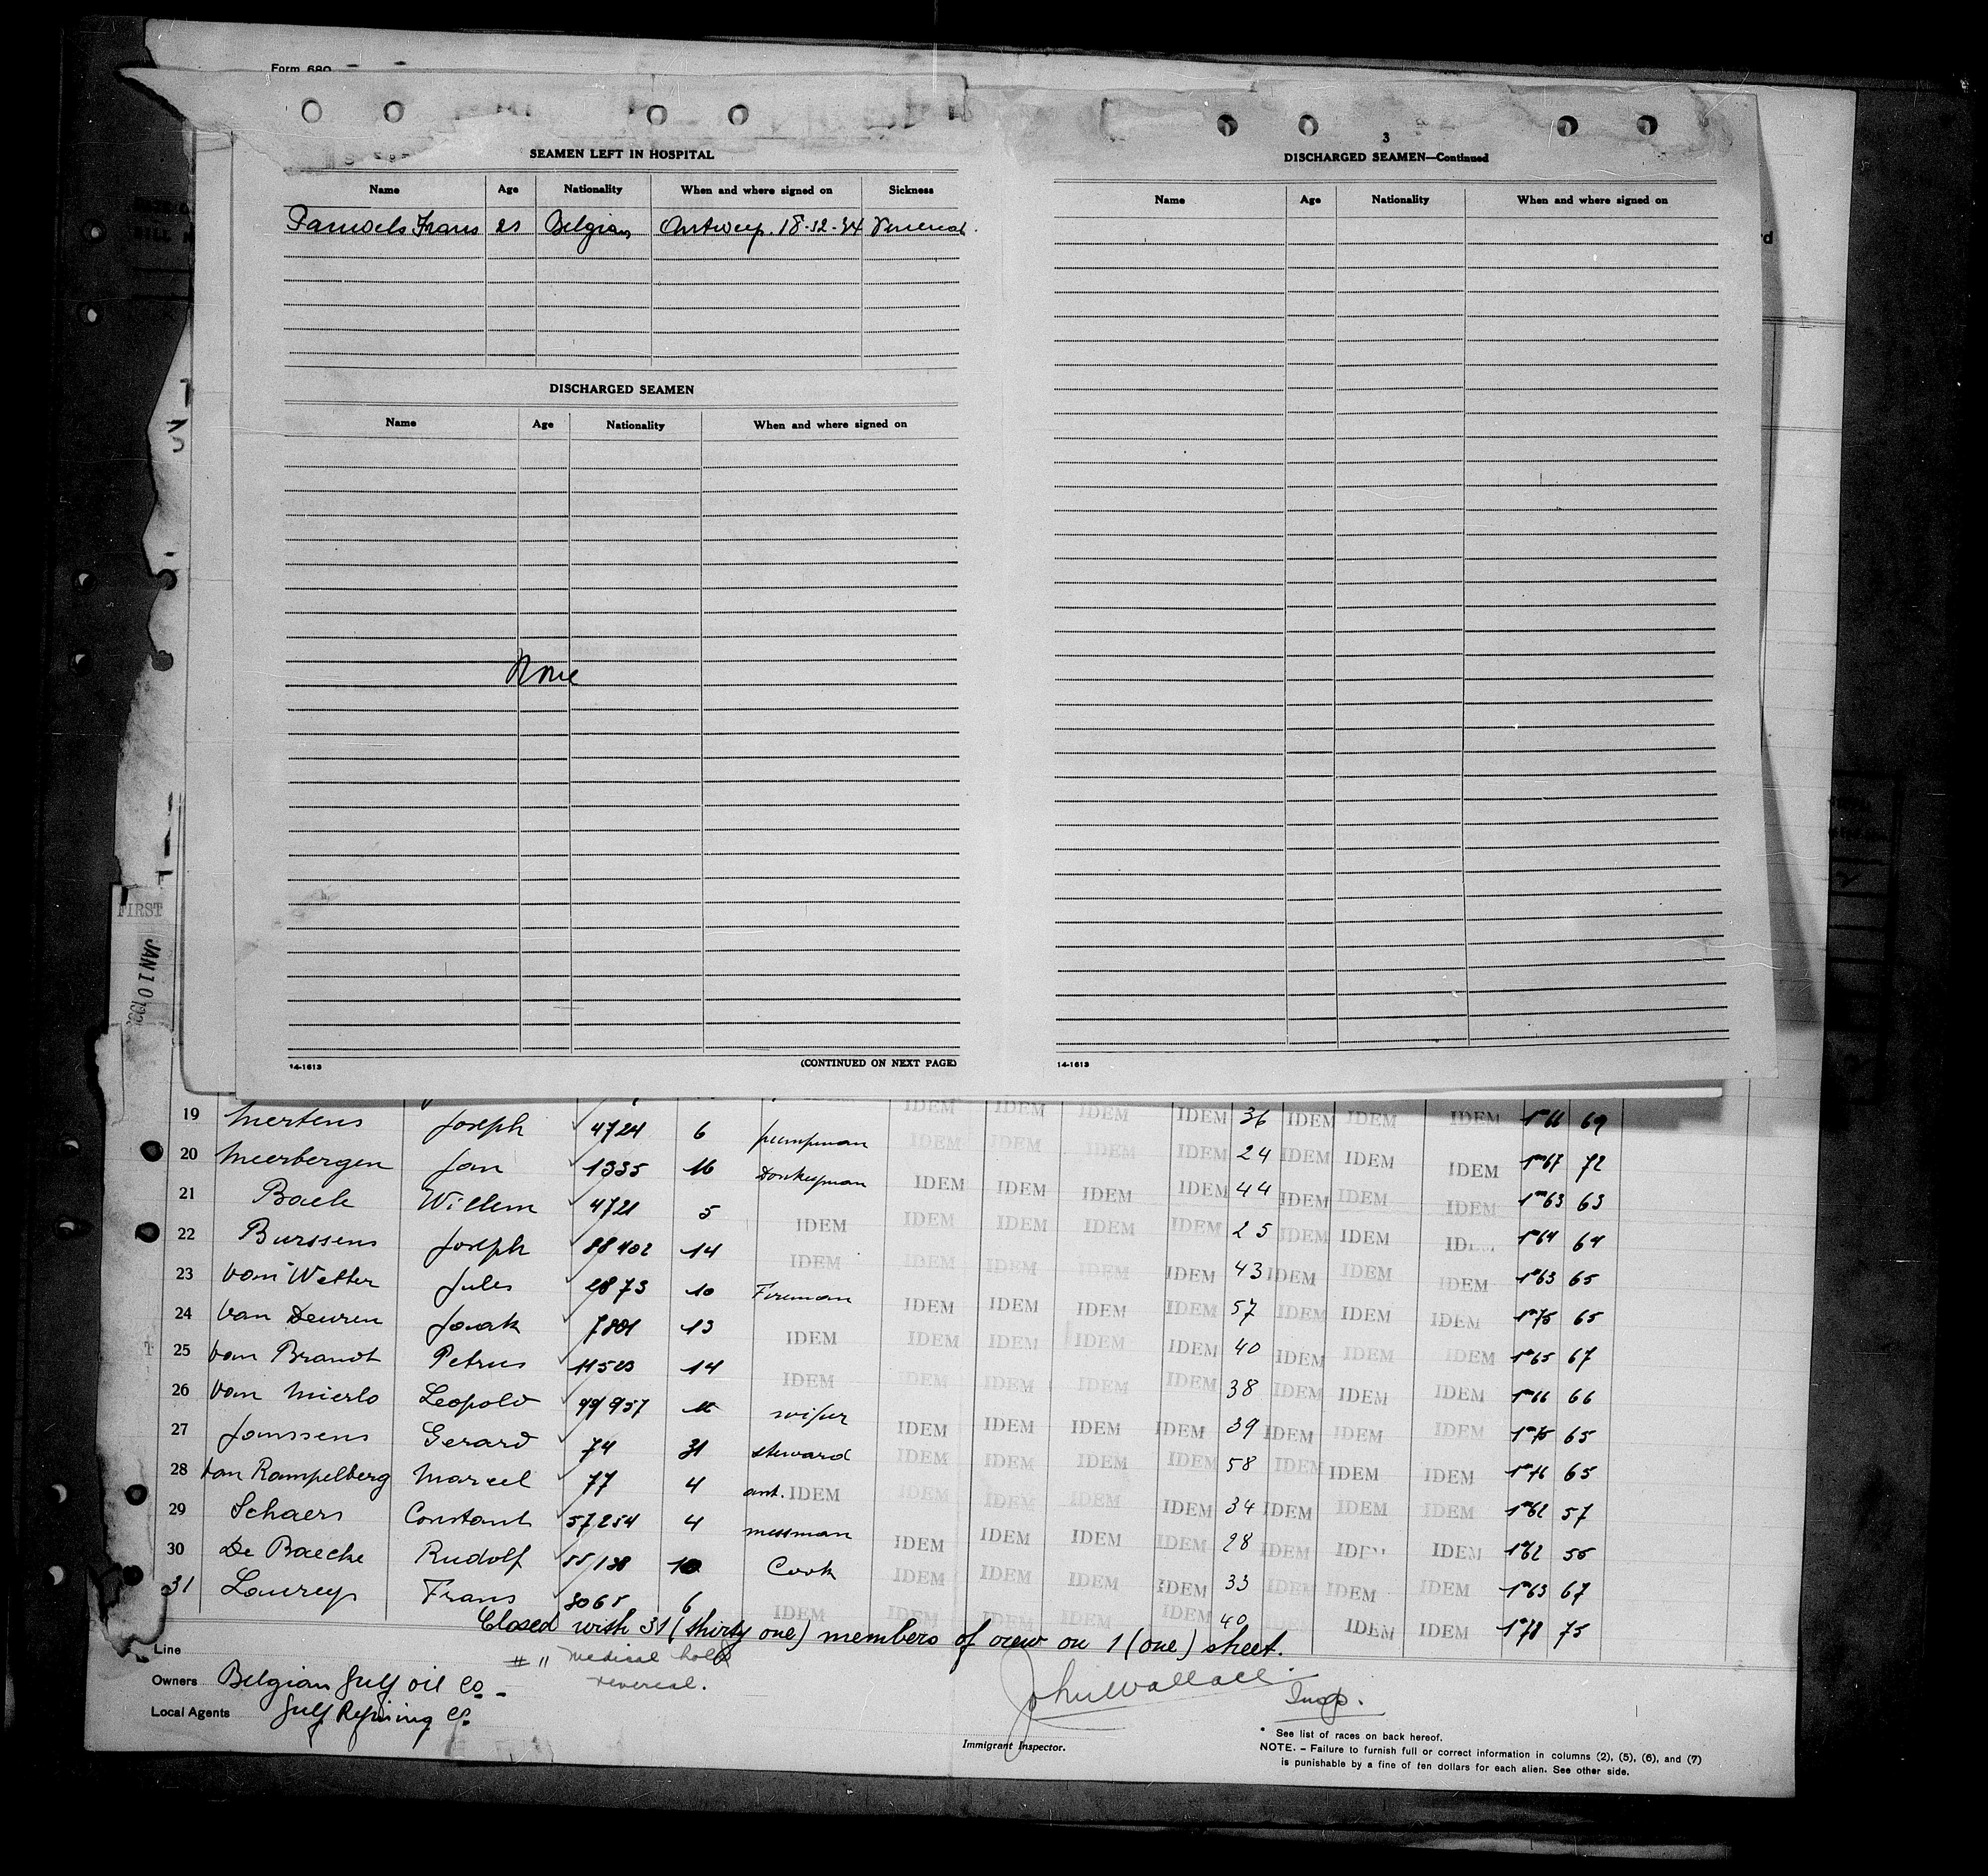 Form 680
SEAMEN LEFT IN HOSPITAL
Name Age Nationality When and where signed on Sickness
Pauwels Frans 21 Belgian Antwerp. 18-12-34 Venereal.
DISCHARGED SEAMEN
Name Age Nationality When and where signed on
None
14-1613 (CONTINUED ON NEXT PAGE)
3
DISCHARGED SEAMEN—Continued
Name Age Nationality When and where signed on
14-1613
FIRST
JAN 10
19 Mertens Joseph 4724 6 pumpman IDEM IDEM IDEM IDEM 36 IDEM IDEM IDEM 1m66 69
20 Meerbergen Jan 1335 16 Donkeyman IDEM IDEM IDEM IDEM 24 IDEM IDEM IDEM 1m67 72
21 Willem 4721 5 IDEM IDEM IDEM IDEM IDEM 44 IDEM IDEM IDEM 1m63 63
22 Burssens Joseph 88402 14 IDEM IDEM IDEM IDEM IDEM 25 IDEM IDEM 1m64 64
23 Van Wetter Jules 2873 10 Fireman IDEM IDEM IDEM IDEM 43 IDEM IDEM IDEM 1m63 65
24 Van Deuren 7801 13 IDEM IDEM IDEM IDEM IDEM 57 IDEM IDEM IDEM 1m75 65
25 Van Brandt Petrus 14 IDEM IDEM IDEM IDEM IDEM 40 IDEM IDEM IDEM 1m65 67
26 Van Mierlo Leopold 99957 wiper IDEM IDEM IDEM IDEM 38 IDEM IDEM IDEM 1m66 66
27 Janssens Gerard 74 31 steward IDEM IDEM IDEM IDEM 39 IDEM IDEM IDEM 1m75 65
28 Van Rampelberg Marcel 77 4 ant. IDEM IDEM IDEM IDEM IDEM 58 IDEM IDEM IDEM 1m76 65
29 Schaers Constant 57254 4 messman IDEM IDEM IDEM IDEM 34 IDEM IDEM IDEM 1m62 57
30 De Baecke Rudolf 55138 10 Cook IDEM IDEM IDEM IDEM 28 IDEM IDEM 1m62 55
31 Laureys Frans 8065 6 IDEM IDEM IDEM IDEM IDEM 33 IDEM IDEM IDEM 1m63 67
40 IDEM IDEM 1m78 75
Closed with 31 (thirty one) members of crew on 1 (one) sheet.
Line
# " Medical hold
venereal.
Owners Belgian Gulf oil Co.
Local Agents Gulf Refining Co.
John Wallace
Insp.
Immigrant Inspector.
* See list of races on back hereof.
NOTE. – Failure to furnish full or correct information in columns (2), (5), (6), and (7)
is punishable by a fine of ten dollars for each alien. See other side.